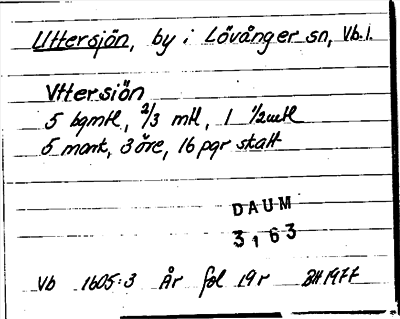 Uttersjön, by i Lövånger sn, Vb.l.
Vttersiön
5 bgmtl, 2/3 mtl, 1 1/2mtl
5 mark, 3 öre, 16 pgr skatt
DAUM
3163
Vb 1605:3 År fol 19r BH1977